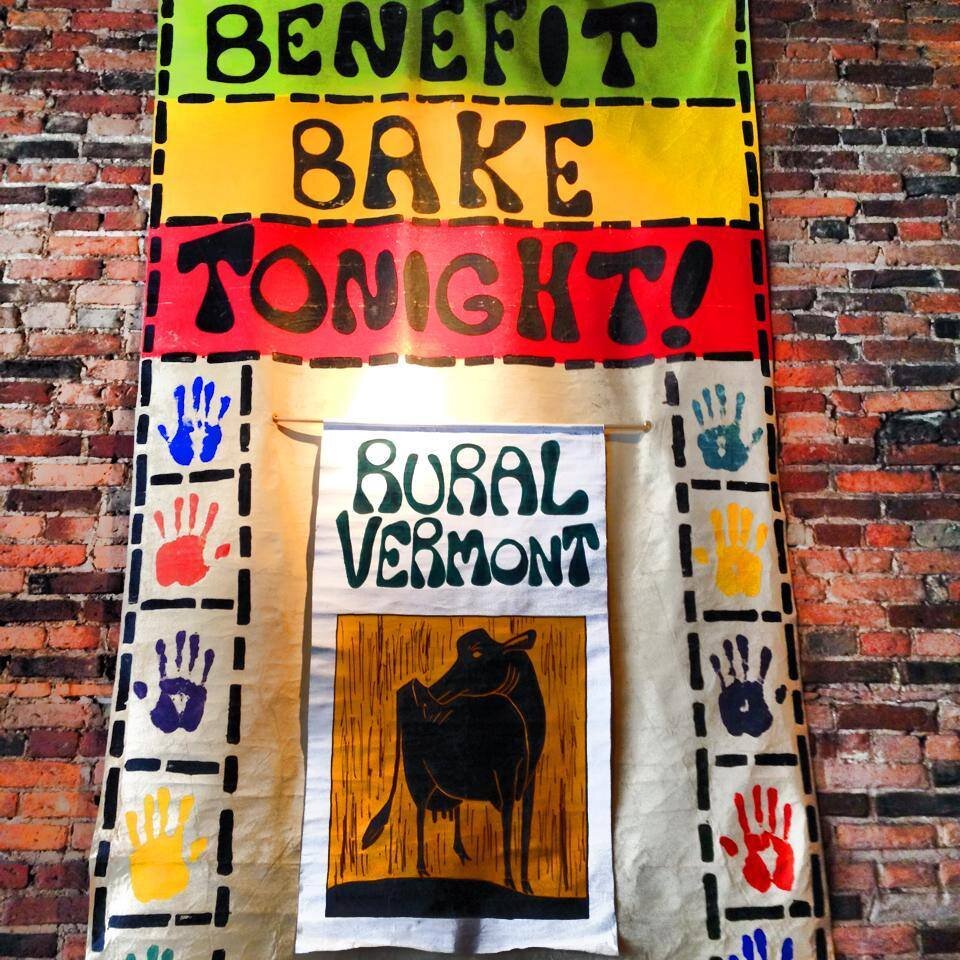 BENEFIT
BAKE
TONIGHT!
RURAL
VERMONT